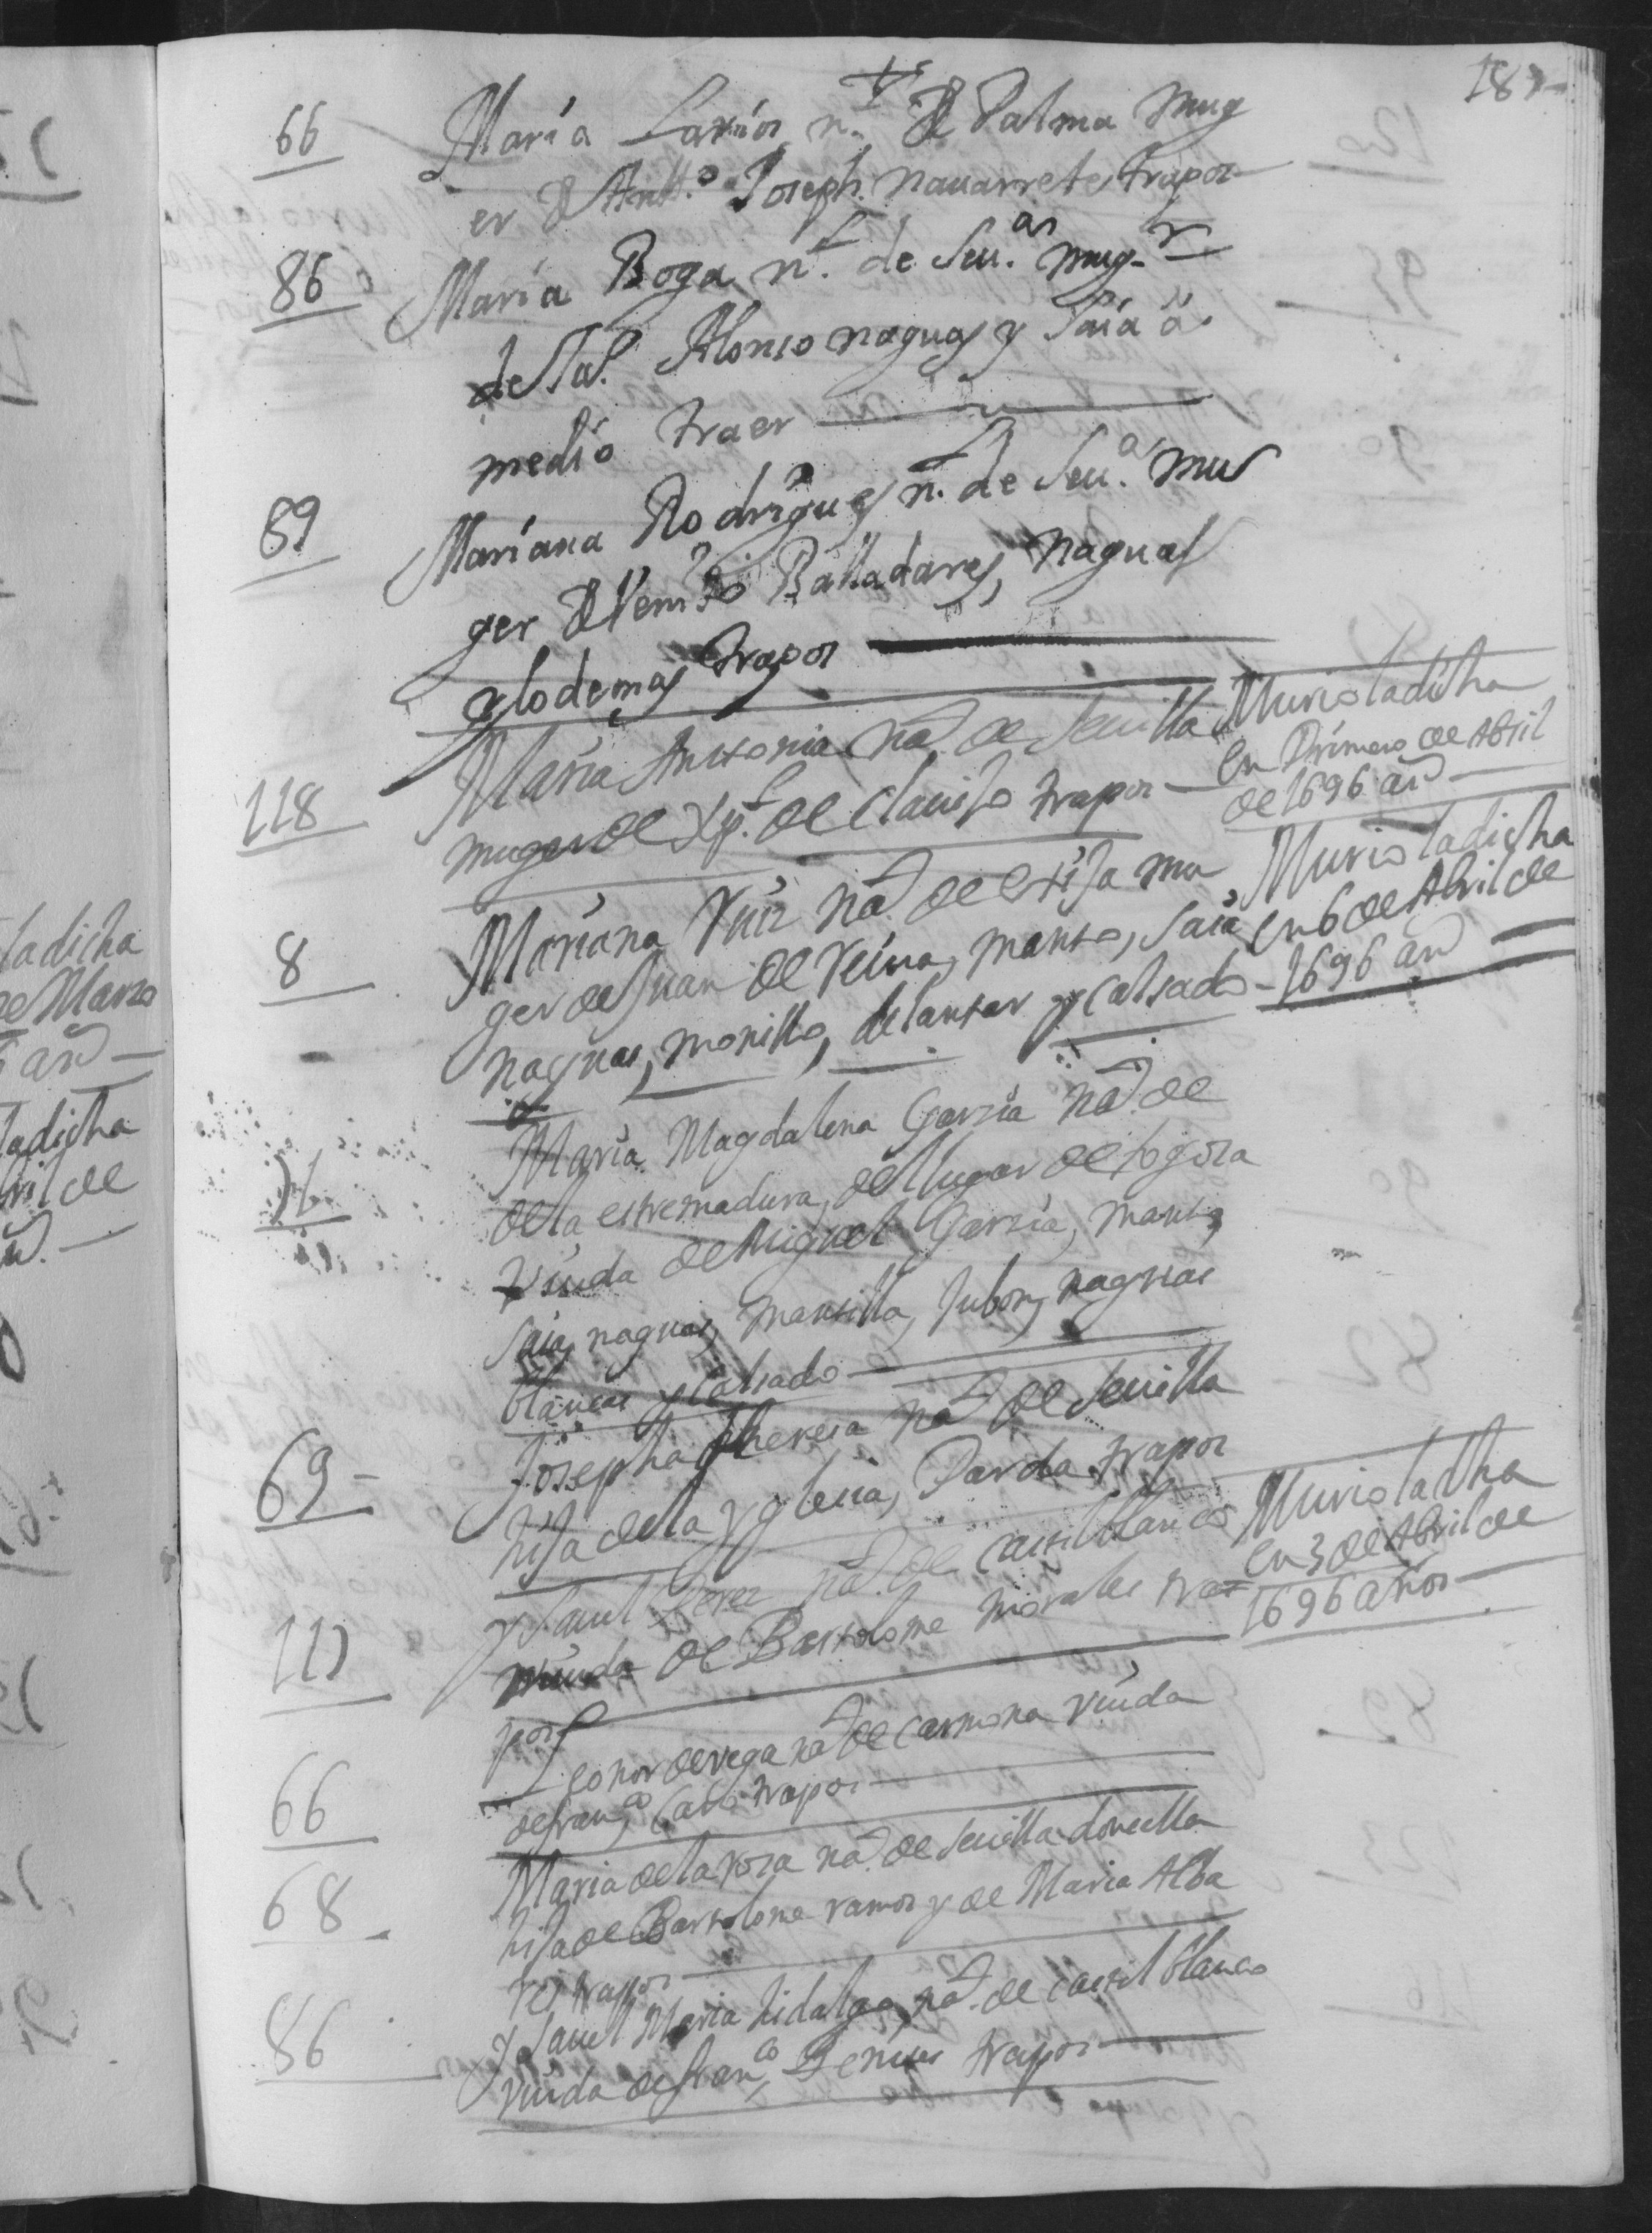 187
66 Maria Larios n.l de Palma mug
er de Antt.o Joseph nauarrete, trapos
86 Maria Boga n.l de Seu.a mug.r
de Alonso naguas y saia a
medio traer
89 Mariana Rodrigues n.l de Seu.a mu
ger de Balladares, naguas
y lo demas trapos
118 Maria Antonia nal de Seuilla
muger de Xpl de Clauijo trapos
Murio la dicha
en Primero de Abril
de 1696 añ
8 Mariana Ruiz nal de esija mu
ger de Juan de Reina, manto, saia
naguas, monillo, delantar y calsado
Murio la dicha
en 6 de Abril de
1696 añ
Maria Magdalena Garzia nal de
de la estremadura, del lugar de
Viuda de Miguel Garzia, manto,
saia, naguas, mantilla, Jubon, naguas
blancas y calsado
69 Josepha theresa nal de Seuilla
hija de la yglesia, Parda trapos
111 Ysauel Perez nal de castilblanco
viuda de Bartolome morales tra
pos
Murio la dha
en 3 de Abril de
1696 años
66 Leonor de vega nal de Carmona viuda
de fran.co Caro trapos
68 Maria de la rosa nal de Seuilla donzella
hija de Bartolome ramos y de Maria Alba
res trapos
86 Ysauel Maria hidalgo nal de castilblanco
viuda de fran.co trapos